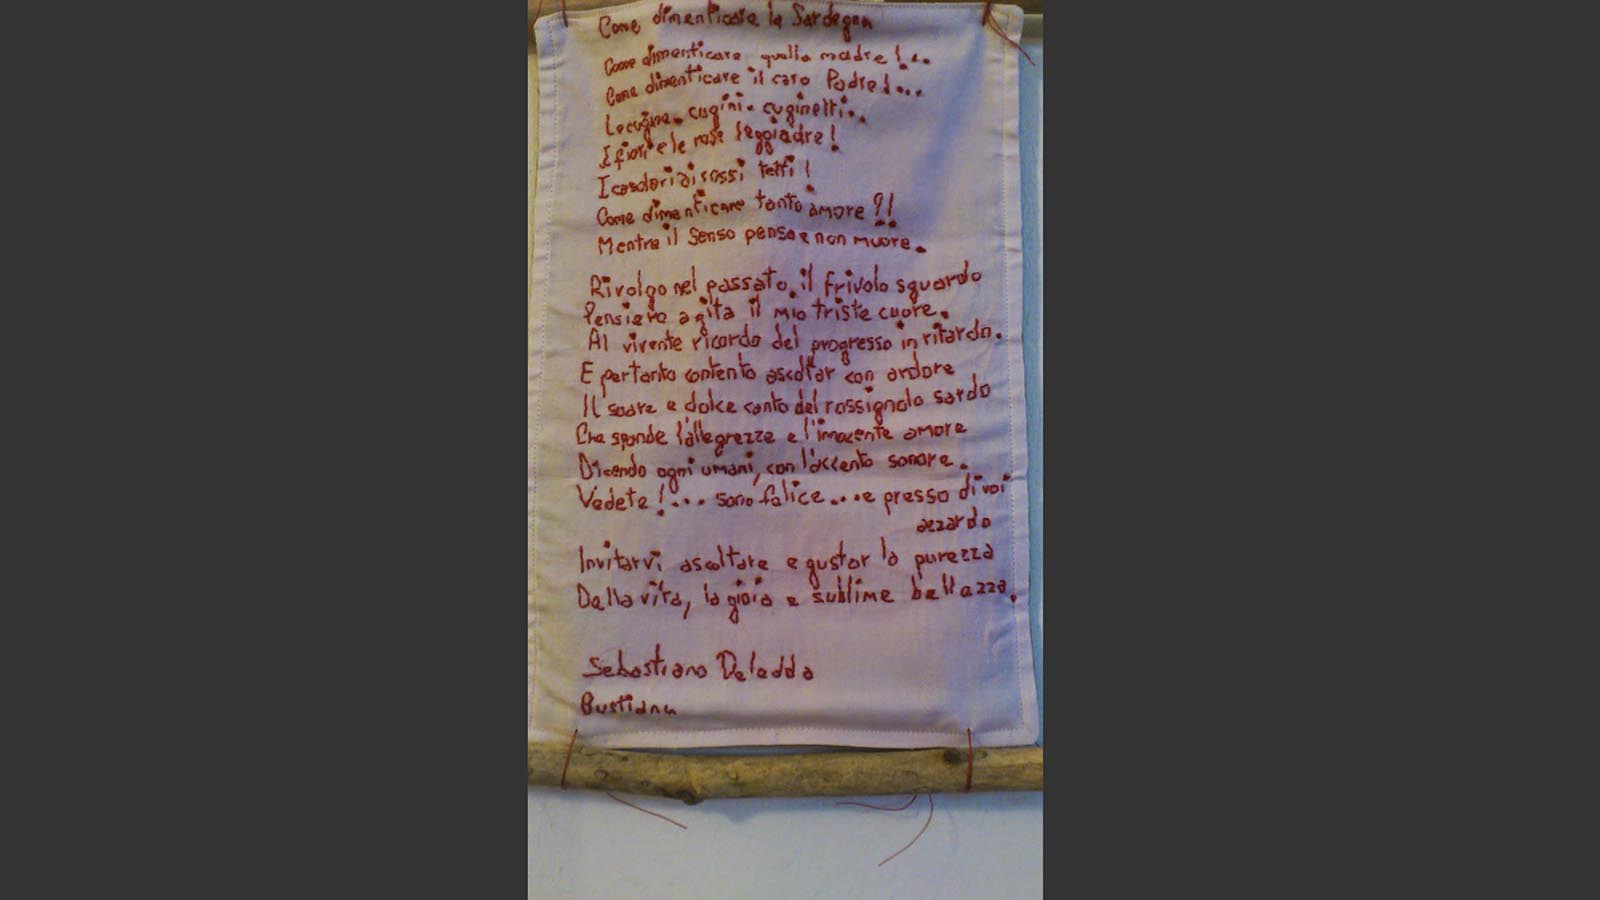 Come dimenticare la Sardegna
Come dimenticare quella madre!...
Come dimenticare il caro Padre!...
Le cugine. cugini. cuginetti...
I fiori e le rose leggiadre!
I casolari di rossi tetti!
Come dimenticare tanto amore?!
Mentre il Senso pensa e non muore.
Rivolgo nel passato, il frivolo sguardo
Pensiero agita il mio triste cuore.
Al vivente ricordo del progresso in ritardo.
E pertanto contento ascoltar con ardore
Il soave e dolce canto del rossignolo sardo
Che spande l'allegrezze e l'innocente amore
Dicendo ogni umani, con l'accento sonore.
Vedete!... sono felice... e presso di voi
azzardo
Invitarvi ascoltare e gustar la purezza
Della vita, la gioia e sublime bellezza.
Sebastiano Deledda
Bustianu